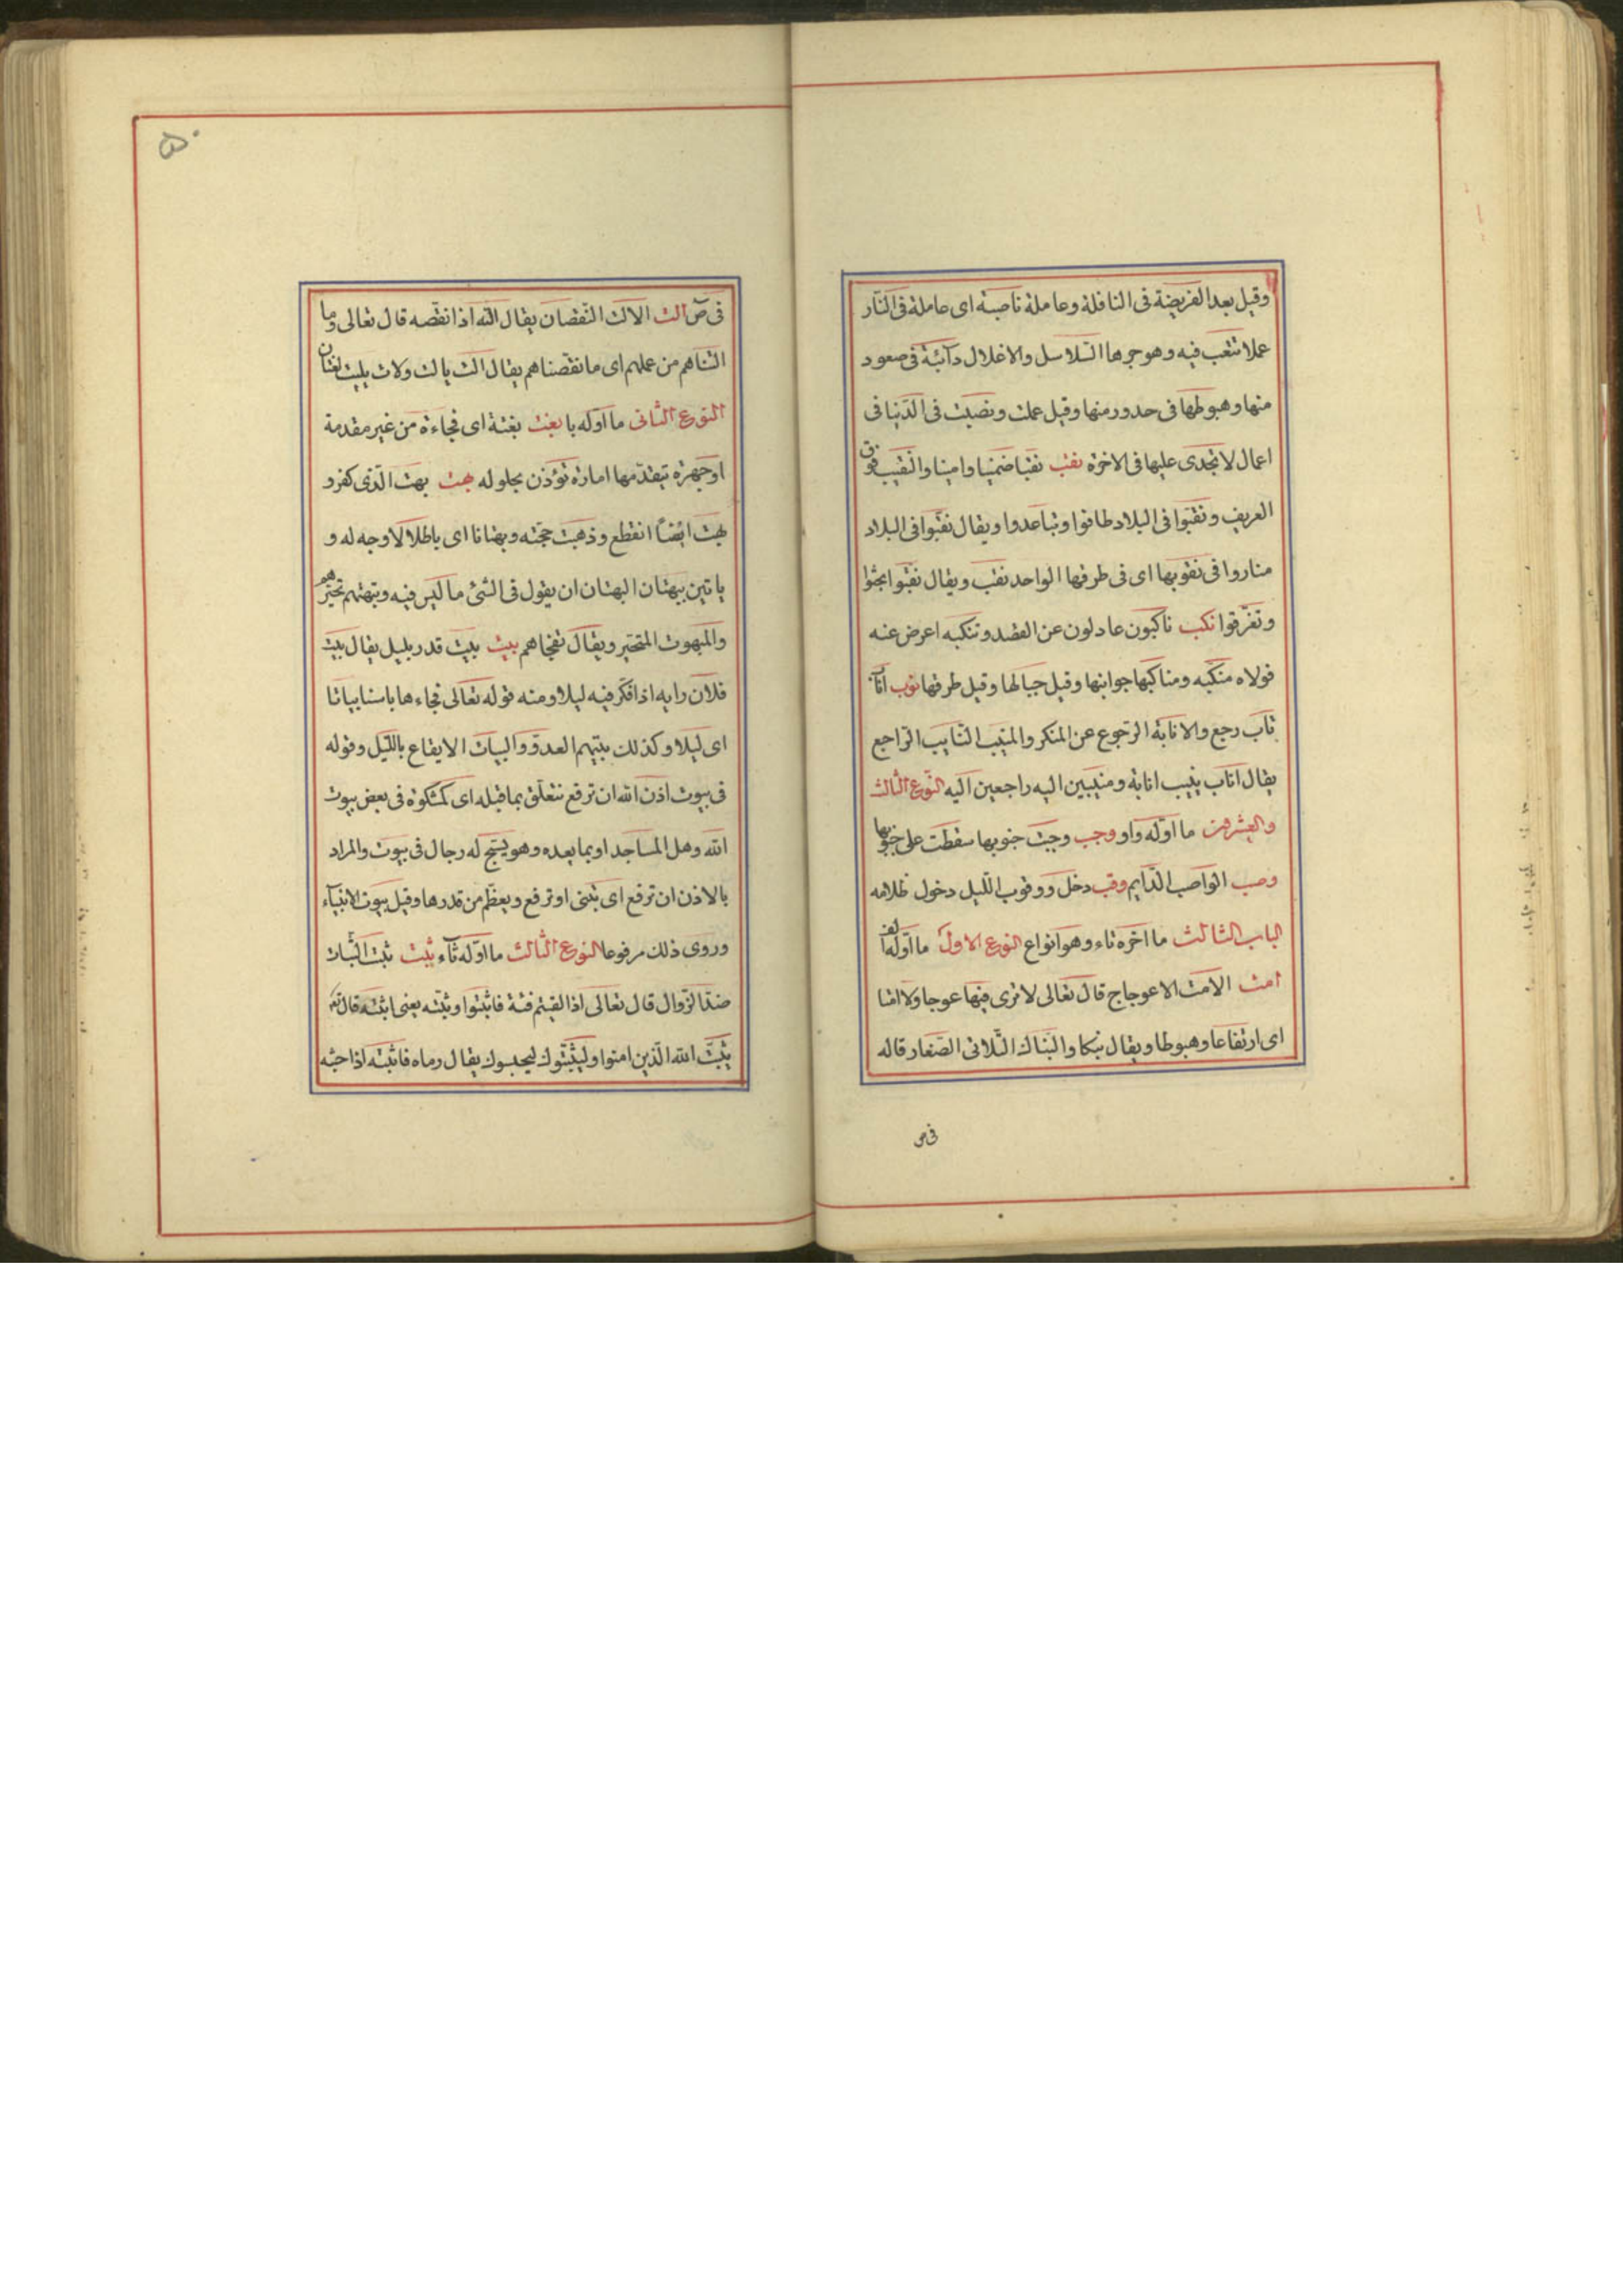 وقيل بعد الفريضة فى النافلة وعاملة ناصبة اى عاملة فى النّار
عملا تتعب فيه وهو جرها السّلاسل والاغلال دآئبة فى صعود
منها وهبوطها فى حدور منها وقيل عملت ونصبت فى الدّنيا فى
اعمال لا تجدى عليها فى الاخرة نقب نقبا ضمنيا وامينا والنّقيب فوق
العريف ونقبوا فى البلاد طافوا وتباعدوا ويقال نقّبوا فى البلاد
مناروا فى نقوبها اى فى طرقها الواحد نقب ويقال نقّبوا بحثوا
وتفرّقوا نكب ناكبون عادلون عن القصد وتنكبه اعرض عنه
فولاه منكبه ومناكبها جوانبها وقيل جبالها وقيل طرقها نوب اناب
تاب رجع والانابة الرّجوع عن المنكر والمنيب التّايب الرّاجع
يقال اناب ينيب انابة ومنيبين اليه راجعين اليه النّوع الثالث
والعشرون ما اوّله واو وجب وجبت جنوبها سقطت على جنوبها
وصب الواصب الدّايم وقب دخل ووقوب اللّيل دخول ظلامه
الباب الثالث ما اخره تاء وهو انواع النوع الاول ما اوّله الف
امت الامت الاعوجاج قال تعالى لا ترى فيها عوجا ولا امتا
اى ارتفاعا وهبوطا ويقال نبكا والنّباك التّلال الصّغار قاله
فى ص
۵۰
فى ص الت الالت النّقصان يقال التّه اذا نقّصه قال تعالى وما
التناهم من عملهم اى ما نقّصناهم يقال الت يالت ولات يليت لغتان
النّوع الثّانى ما اوّله با بغت بغتة اى فجاءة من غير مقدمة
او جهرة تيقدّمها امارة تؤذن بحلوله بهت بهت الّذى كفر و
بهت ايضا انقطع وذهبت حجّته وبهتانا اى باطلا لا وجه له و
ياتين ببهتان البهتان ان يقول فى الشّئ ما ليس فيه وتبهتهم تحيّرهم
والمبهوت المتحيّر ويقال تفجاهم بيت بيّت قدر بليل يقال بيّت
فلان رايه اذا فكّر فيه ليلا ومنه قوله تعالى فجاءها باسنا بياتا
اى ليلا وكذلك بيّتهم العدوّ والبيات الايقاع باللّيل وقوله
فى بيوت اذن الله ان ترفع تتعلّق بما قبله اى كمشكوة فى بعض بيوت
الله وهل المساجد او بما بعده وهو يسبّح له رجال فى بيوت والمراد
بالاذن ان ترفع اى تبنى او ترفع ويعظّم من قدرها وقيل بيوت الانبيآء
وروى ذلك مرفوعا النّوع الثّالث ما اوّله ثآء ثبت ثبت الثّبات
ضدّ الزّوال قال تعالى اذا لقيتم فئة فاثبتوا وثبّته يعنى اثبته قال تعـ
يثبّت الله الّذين امنوا وليثبّتوك ليحبسوك يقال رماه فاثبته اذا حبسه